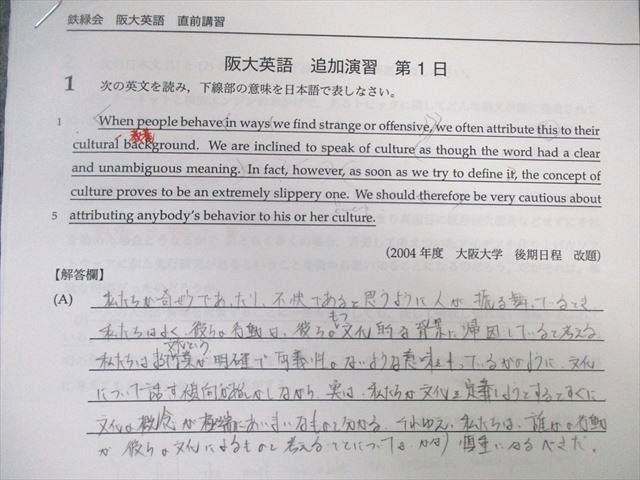 鉄緑会 阪大英語 直前講習
阪大英語 追加演習 第1日
1 次の英文を読み,下線部の意味を日本語で表しなさい。
1 When people behave in ways we find strange or offensive, we often attribute this to their
教養
cultural background. We are inclined to speak of culture as though the word had a clear
and unambiguous meaning. In fact, however, as soon as we try to define it, the concept of
culture proves to be an extremely slippery one. We should therefore be very cautious about
5 attributing anybody's behavior to his or her culture.
(2004年度 大阪大学 後期日程 改題)
【解答欄】
(A) 私たちが奇妙であったり、不快であると思うように人が振る舞っているとき、
もつ
私たちはよく彼らの行動は、彼らの文化的な背景に帰因していると考える。
文化という
私たちは言葉が明確で両義性のないような意味をもっているかのように、文化
について話す傾向がある。しかしながら、実は、私たちが文化を定義しようとするとすぐに
文化の概念が極端にあいまいなものと分かる。それゆえ、私たちは、誰かの行動
が彼らの文化によるものと考えることについては、かなり慎重になるべきだ。